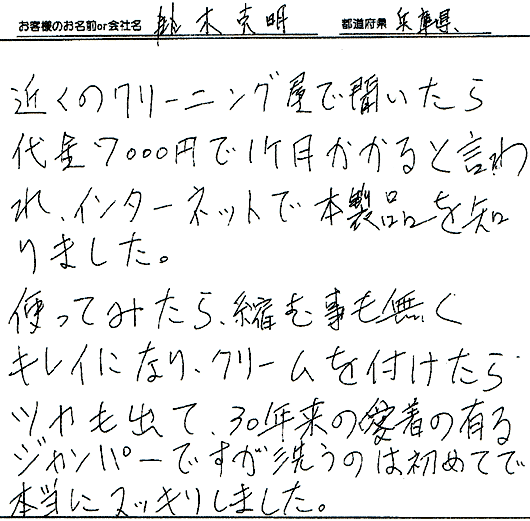 お客様のお名前or会社名 鈴木克明 都道府県 兵庫県、
近くのクリーニング屋で聞いたら
代金7000円で1ヶ月かかると言わ
れ、インターネットで本製品を知
りました。
使ってみたら、縮む事も無く
キレイになり、クリームを付けたら
ツヤも出て、30年来の愛着の有る
ジャンパーですが洗うのは初めてで
本当にスッキリしました。